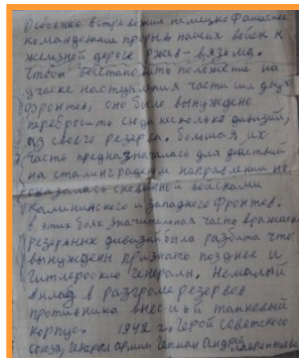 Особенно встревожил немецко-фашистское
командование прорыв наших войск к
железной дороге Ржев-Вязьма.
Чтобы восстановить положение на
участке наступления части сил двух
фронтов, оно было вынуждено
перебросить сюда несколько дивизий,
из своего резерва. Большая их
часть предназначалась для действий
на сталинградском направлении но
оказалась скованной войсками
Калининского и Западного Фронтов.
в этих боях значительная часть вражеских
резервных дивизий была разбита что
вынуждены признать позднее и
Гитлеровские Генералы. Немалый
вклад в разгроме резервов
противника внес и 6й танковый
корпус. 1942 г. Герой Советского
Союза, Генерал армии Гетман Андрей Лаврентьевич